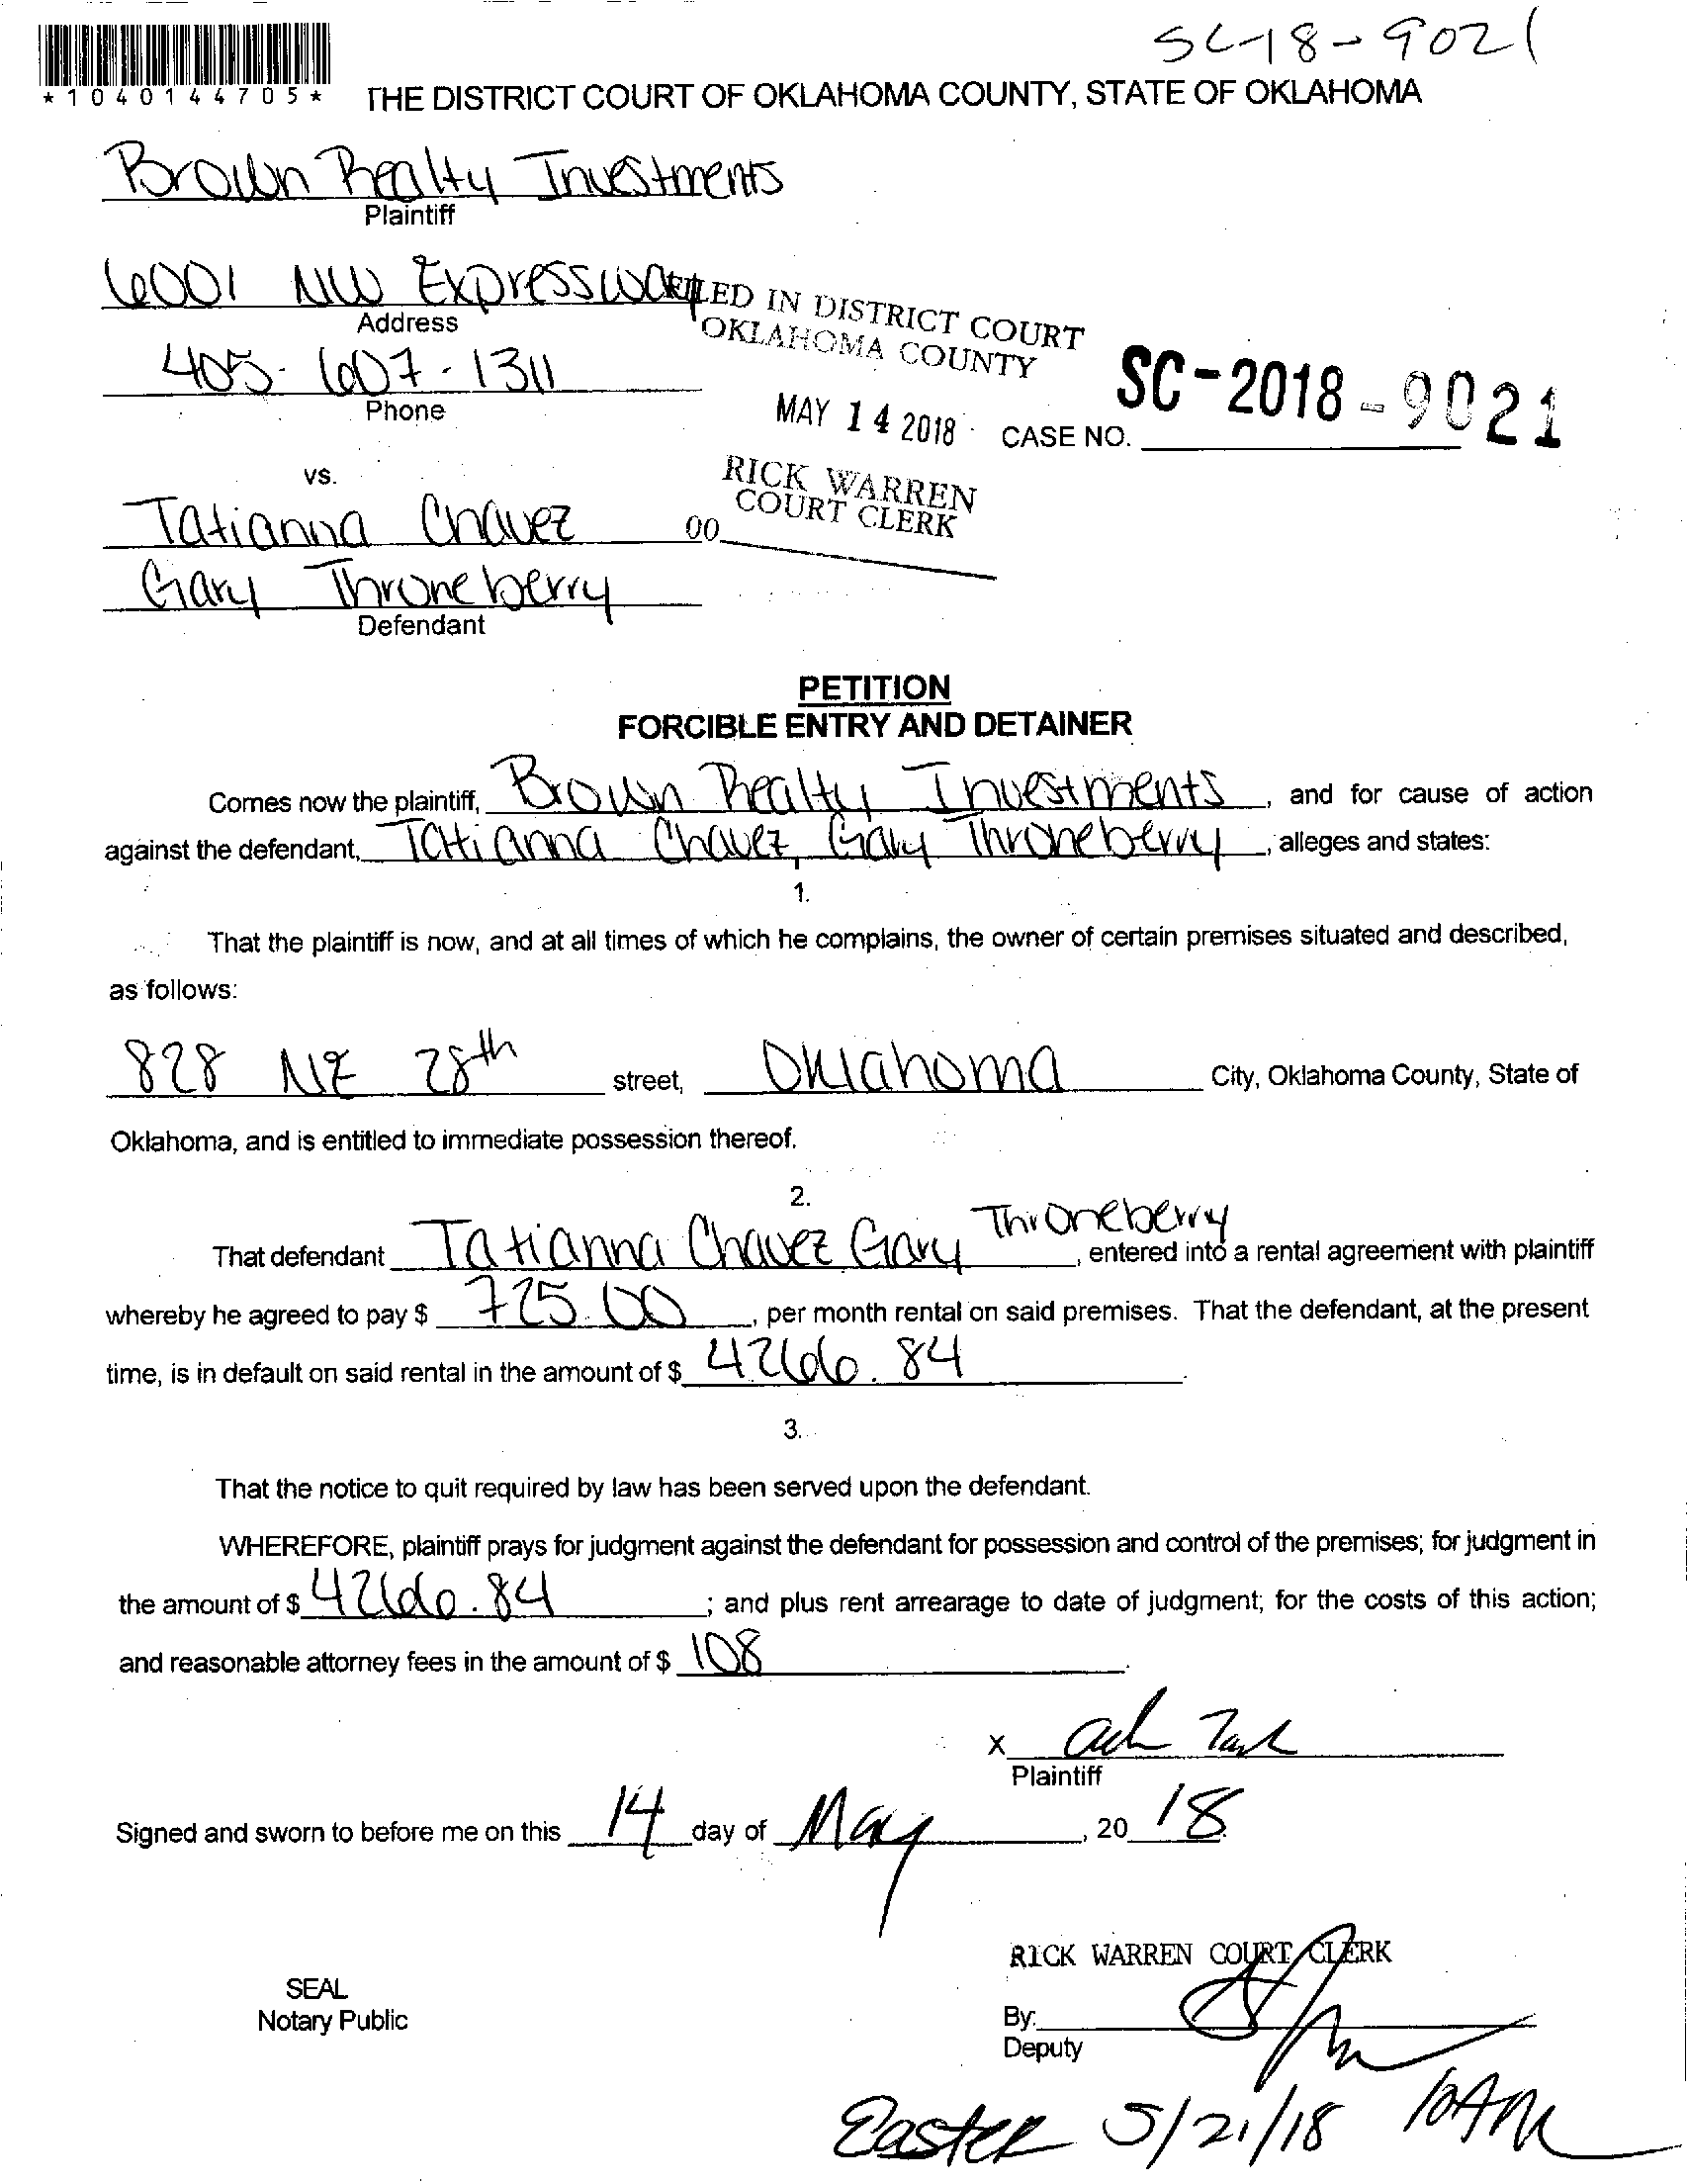 SC-18-9021
*1040144705*
THE DISTRICT COURT OF OKLAHOMA COUNTY, STATE OF OKLAHOMA
Brown Realty Investments
Plaintiff
6001 NW Expressway
Address
FILED IN DISTRICT COURT
OKLAHOMA COUNTY
405-607-1311
Phone
MAY 14 2018
CASE NO. SC-2018-9021
RICK WARREN
COURT CLERK
vs.
Tatianna Chavez
00
Gary Throneberry
Defendant
PETITION
FORCIBLE ENTRY AND DETAINER
Comes now the plaintiff, Brown Realty Investments, and for cause of action
against the defendant, Tatianna Chavez, Gary Throneberry, alleges and states:
1.
That the plaintiff is now, and at all times of which he complains, the owner of certain premises situated and described,
as follows:
828 NE 28th street, Oklahoma City, Oklahoma County, State of
Oklahoma, and is entitled to immediate possession thereof.
2.
That defendant Tatianna Chavez Gary Throneberry, entered into a rental agreement with plaintiff
whereby he agreed to pay $ 725.00, per month rental on said premises. That the defendant, at the present
time, is in default on said rental in the amount of $ 4266.84.
3.
That the notice to quit required by law has been served upon the defendant.
WHEREFORE, plaintiff prays for judgment against the defendant for possession and control of the premises; for judgment in
the amount of $ 4266.84; and plus rent arrearage to date of judgment; for the costs of this action;
and reasonable attorney fees in the amount of $ 108
X
Plaintiff
Signed and sworn to before me on this 14 day of May, 20 18.
RICK WARREN COURT CLERK
SEAL
Notary Public
By:
Deputy
Easter 5/21/18 10AM